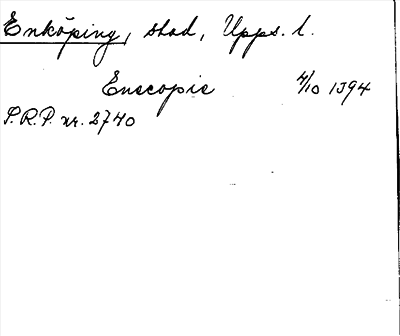 Enköping, stad, Upps. l.
Enecopie 4/10 1394
S.R.P. nr. 2740